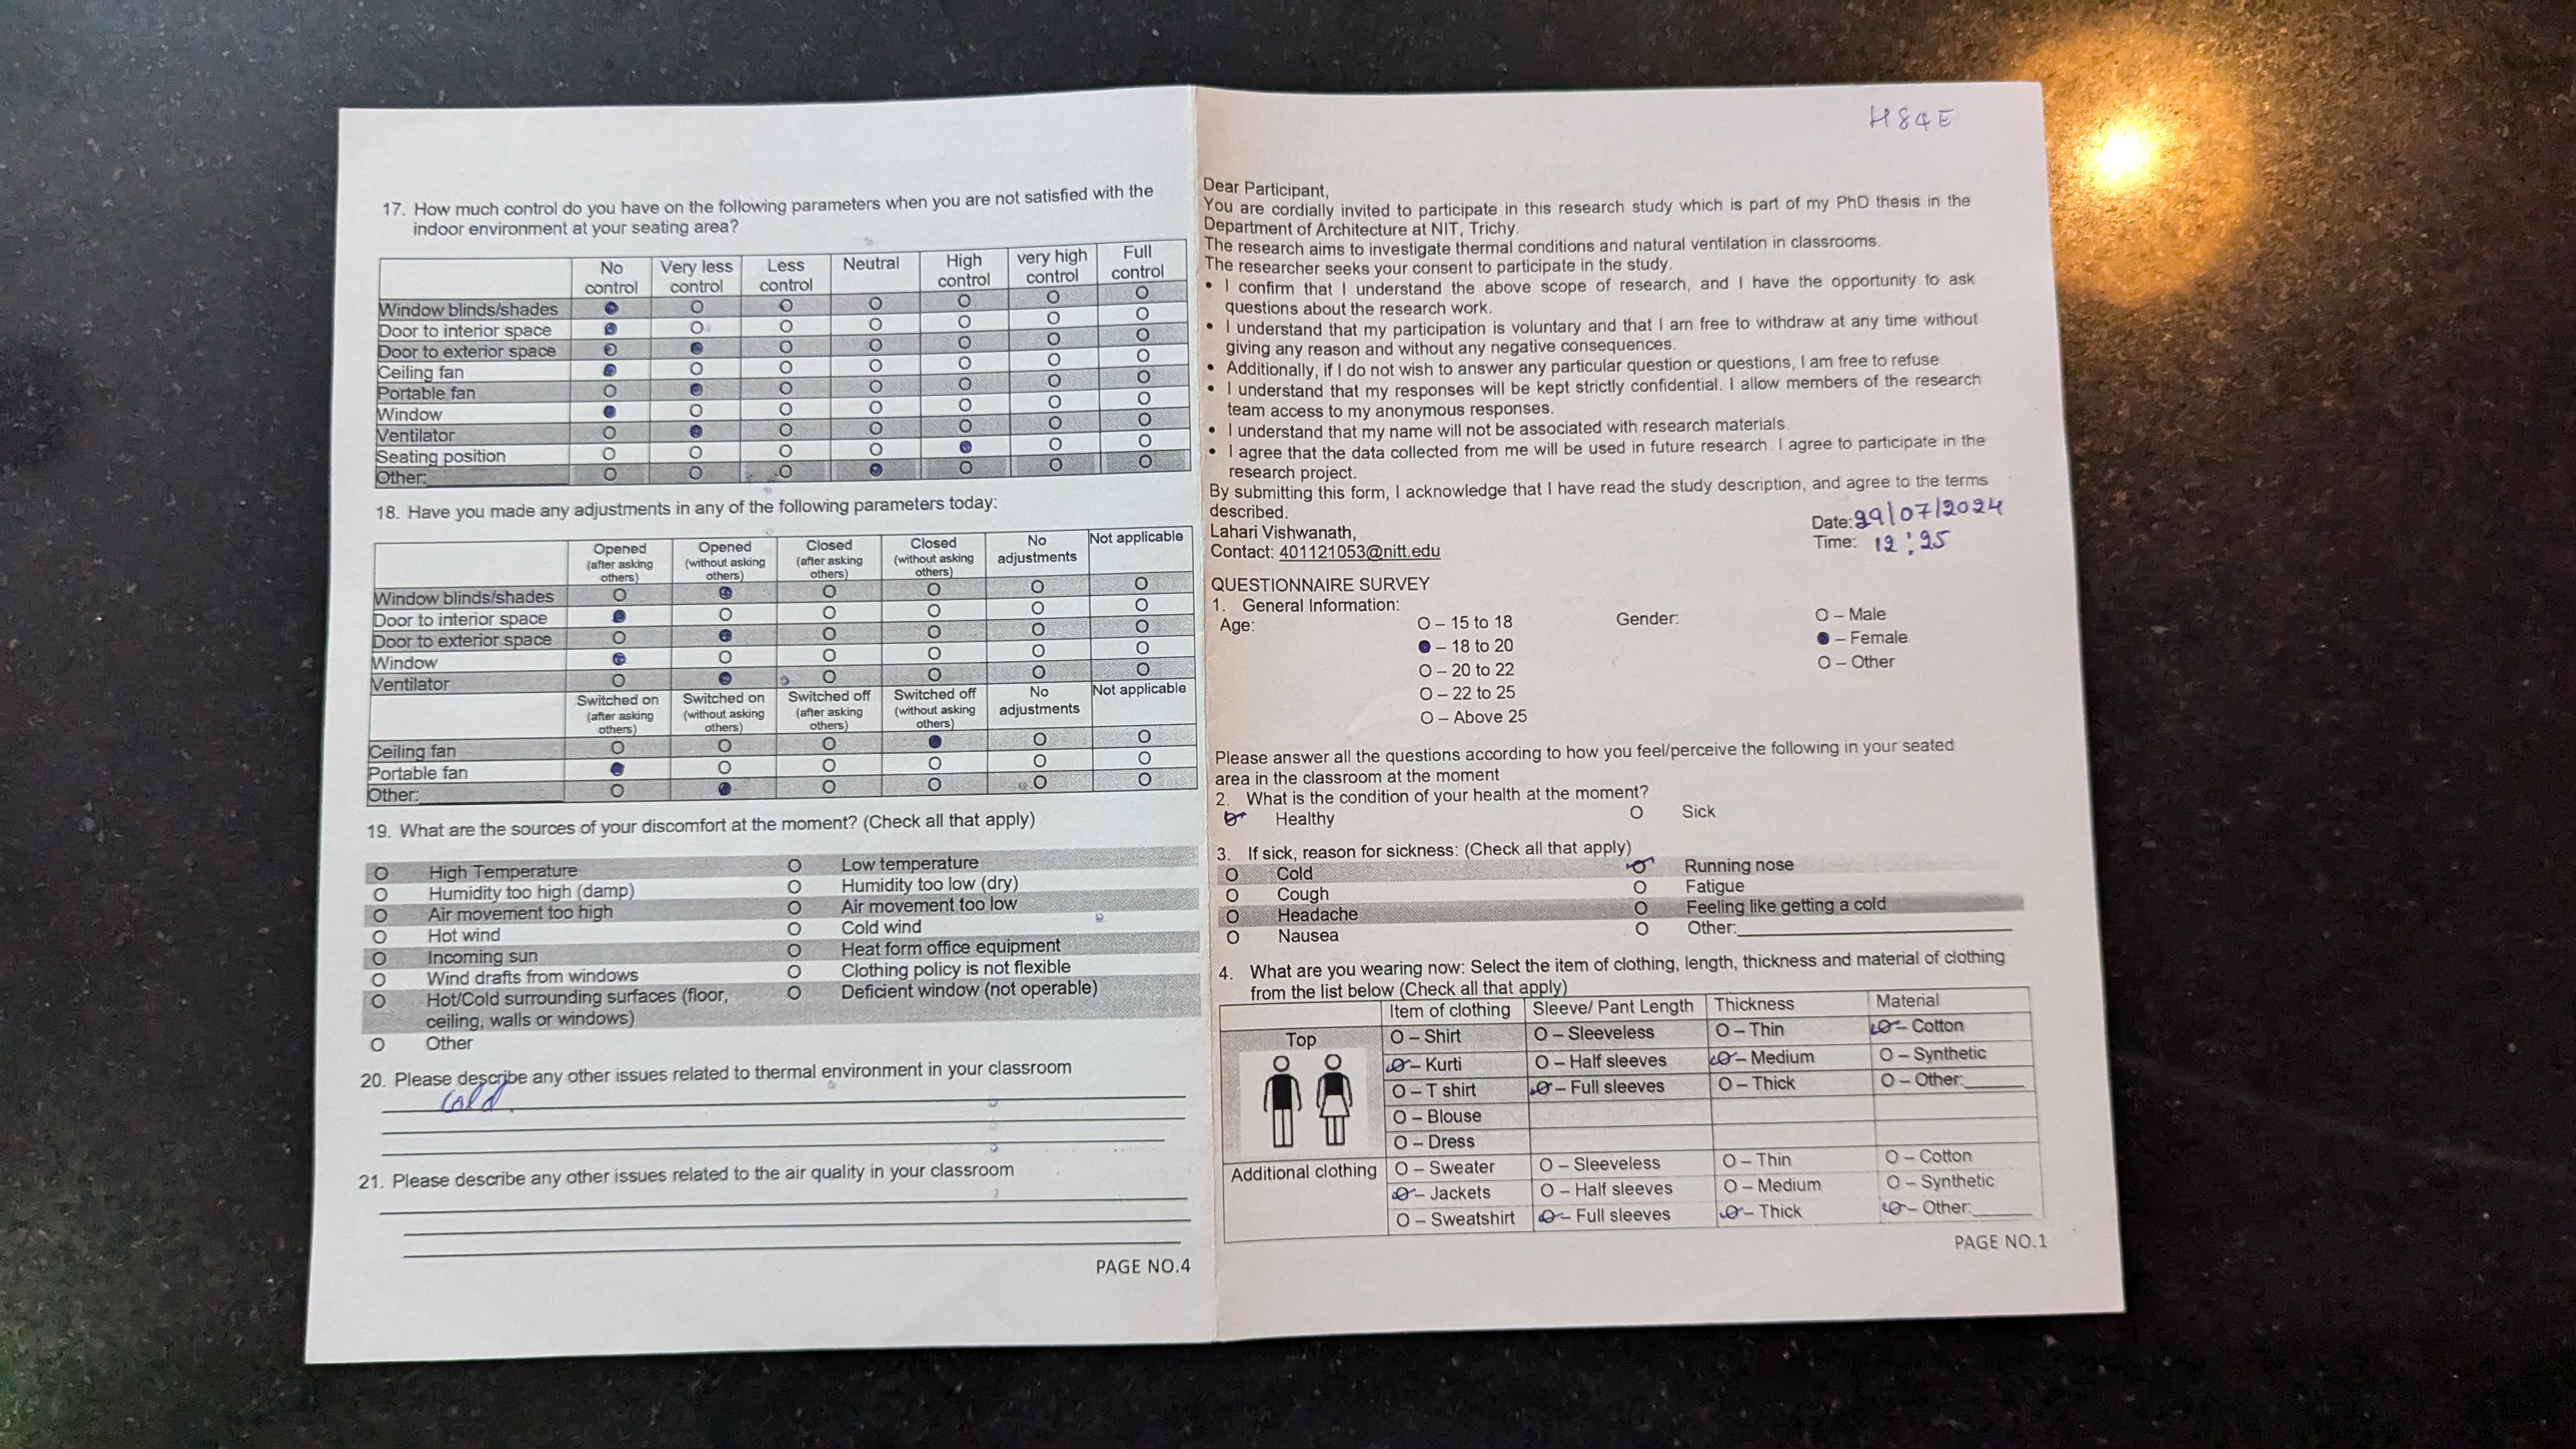 17. How much control do you have on the following parameters when you are not satisfied with the
indoor environment at your seating area?
No control Very less control Less control Neutral High control very high control Full control
Window blinds/shades O O O O O O O
Door to interior space O O O O O O O
Door to exterior space O O O O O O O
Ceiling fan O O O O O O O
Portable fan O O O O O O O
Window O O O O O O O
Ventilator O O O O O O O
Seating position O O O O O O O
Other: O O O O O O O
18. Have you made any adjustments in any of the following parameters today:
Opened (after asking others) Opened (without asking others) Closed (after asking others) Closed (without asking others) No adjustments Not applicable
Window blinds/shades O O O O O O
Door to interior space O O O O O O
Door to exterior space O O O O O O
Window O O O O O O
Ventilator O O O O O O
Switched on (after asking others) Switched on (without asking others) Switched off (after asking others) Switched off (without asking others) No adjustments Not applicable
Ceiling fan O O O O O O
Portable fan O O O O O O
Other: O O O O O O
19. What are the sources of your discomfort at the moment? (Check all that apply)
O High Temperature O Low temperature
O Humidity too high (damp) O Humidity too low (dry)
O Air movement too high O Air movement too low
O Hot wind O Cold wind
O Incoming sun O Heat form office equipment
O Wind drafts from windows O Clothing policy is not flexible
O Hot/Cold surrounding surfaces (floor, O Deficient window (not operable)
ceiling, walls or windows)
O Other
20. Please describe any other issues related to thermal environment in your classroom
Cold.
21. Please describe any other issues related to the air quality in your classroom
PAGE NO.4
H84E
Dear Participant,
You are cordially invited to participate in this research study which is part of my PhD thesis in the
Department of Architecture at NIT, Trichy.
The research aims to investigate thermal conditions and natural ventilation in classrooms.
The researcher seeks your consent to participate in the study.
• I confirm that I understand the above scope of research, and I have the opportunity to ask
questions about the research work.
• I understand that my participation is voluntary and that I am free to withdraw at any time without
giving any reason and without any negative consequences.
• Additionally, if I do not wish to answer any particular question or questions, I am free to refuse.
• I understand that my responses will be kept strictly confidential. I allow members of the research
team access to my anonymous responses.
• I understand that my name will not be associated with research materials.
• I agree that the data collected from me will be used in future research. I agree to participate in the
research project.
By submitting this form, I acknowledge that I have read the study description, and agree to the terms
described.
Lahari Vishwanath,
Contact: 401121053@nitt.edu
Date: 29/07/2024
Time: 12:25
QUESTIONNAIRE SURVEY
1. General Information:
Age: O – 15 to 18 Gender: O – Male
O – 18 to 20 O – Female
O – 20 to 22 O – Other
O – 22 to 25
O – Above 25
Please answer all the questions according to how you feel/perceive the following in your seated
area in the classroom at the moment
2. What is the condition of your health at the moment?
O Healthy O Sick
3. If sick, reason for sickness: (Check all that apply)
O Cold O Running nose
O Cough O Fatigue
O Headache O Feeling like getting a cold
O Nausea O Other:
4. What are you wearing now: Select the item of clothing, length, thickness and material of clothing
from the list below (Check all that apply)
Item of clothing Sleeve/ Pant Length Thickness Material
Top O – Shirt O – Sleeveless O – Thin O – Cotton
O – Kurti O – Half sleeves O – Medium O – Synthetic
O – T shirt O – Full sleeves O – Thick O – Other:
O – Blouse
O – Dress
Additional clothing O – Sweater O – Sleeveless O – Thin O – Cotton
O – Jackets O – Half sleeves O – Medium O – Synthetic
O – Sweatshirt O – Full sleeves O – Thick O – Other:
PAGE NO.1